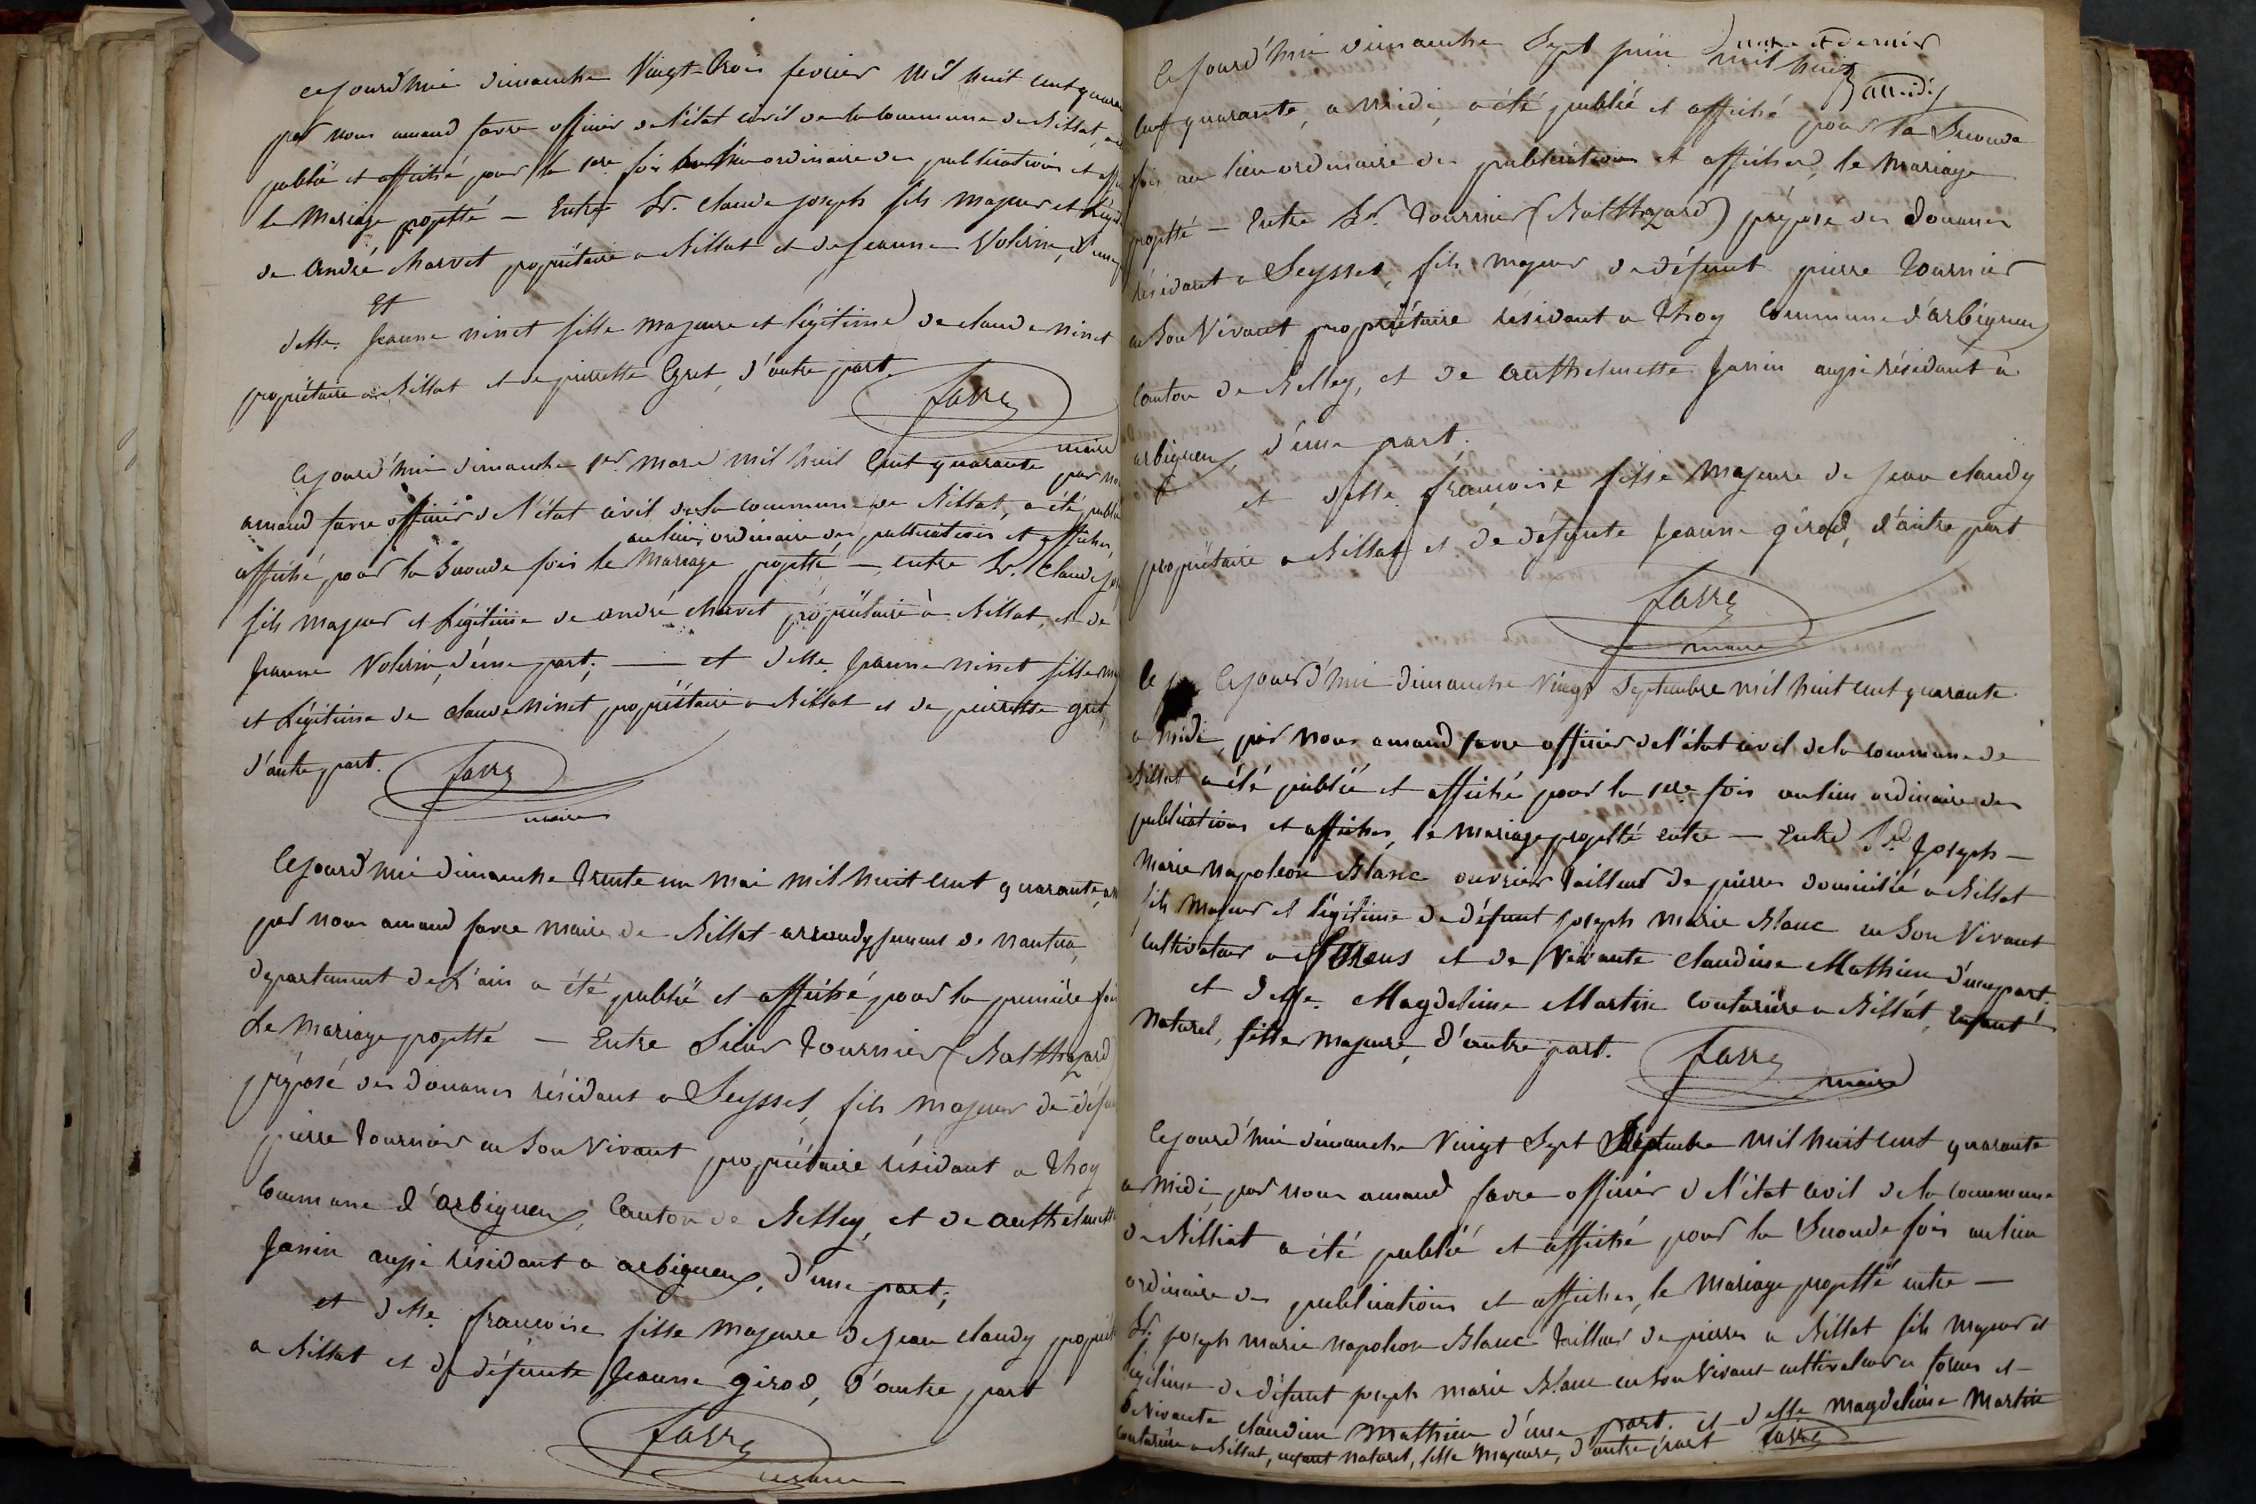 Cejourd'hui dimanche Vingt trois fevrier mil huit cent quaran
par nous amand favre officier de l'état civil de la commune de Billat, a
publié et affiché pour la 1ere fois au lieu ordinaire des publications et affi
le mariage projetté — Entre Sr. claude joseph fils majeur et légit
de André charvet propriétaire a Billat et de jeanne Volerin, d'une
Et
delle. Jeanne ninet fille majeure et légitime de claude ninet
propriétaire a Billat et de pierrette Gret, d'autre part.
favre
maire
Cejourd'hui dimanche 1er mars mil huit cent quarante par no
amand favre officier de l'état civil de la commune de Billat, a été publi
au lieu ordinaire des publications et affiches,
affiché pour la seconde fois le mariage projetté — entre Sr. Claude jo
fils majeur et légitime de andré charvet propriétaire à Billat, et de
Jeanne Volerin, d'une part; — et delle. Jeanne ninet fille maj
et légitime de claude ninet propriétaire a Billat et de pierrette gret,
d'autre part.
favre
maire
Cejourd'hui dimanche trente un mai mil huit cent quarante, a
par nous amand favre maire de Billat arrondissement de nantua,
département de L'ain a été publié et affiché pour la première foi
Le mariage projetté — Entre Sieur Tournier (Balthazard
préposé des douanes résidant a Seyssel, fils majeur de défu
pierre Tournier en son vivant propriétaire résidant a Thoy
Commune d'arbigneux, Canton de Belley, et de anthelmette
Janin aussi résidant a arbigneux, d'une part;
et delle. françoise fille majeure de jean claudy propriét
a Billat et de défunte Jeanne girod, d'autre part
favre
maire
Cejourd'hui dimanche Sept juin mil huit
cent quarante, a midi, a été publié et affiché pour la Seconde
fois au lieu ordinaire des publications et affiches, le mariage
projetté — Entre Sr. Tournier (Balthazard) préposé des douanes
résidant a Seyssel, fils majeur de défunt pierre Tournier
en son vivant propriétaire résidant a Thoy Commune d'arbigneux
Canton de Belley, et de anthelmette Janin aussi résidant à
arbigneux, d'une part;
et delle françoise fille majeure de jean claudy
propriétaire a Billat et de défunte Jeanne girod, d'autre part
favre
maire
Cejourd'hui dimanche vingt Septembre mil huit cent quarante
a midi, par nous amand favre officier de l'état civil de la commune de
Billat a été publié et affiché pour la 1ere fois au lieu ordinaire des
publications et affiches, le mariage projetté entre — Entre Sr. Joseph —
marie napoleon Blanc ouvrier tailleur de pierres domicilié a Billat
fils majeur et légitime de défunt joseph marie Blanc en son vivant
cultivateur a forens et de Vivante claudine Mathieu d'une part.
et delle. Magdeleine Martin Couturière a Billat, enfant
naturel, fille majeure, d'autre part.
favre
maire
Cejourd'hui dimanche Vingt Sept Septembre mil huit cent quarante
a midi, par nous amand favre officier de l'état civil de la commune
de Billiat a été publié et affiché pour la Seconde fois au lieu
ordinaire des publications et affiches, le mariage projetté entre —
Sr. joseph marie napoleon Blanc tailleur de pierres a Billat fils majeur et
légitime de défunt joseph marie Blanc en son vivant cultivateur a forens et
de vivante claudine Mathieu d'une part. et delle magdeleine Martin
couturière a Billat, enfant naturel, fille majeure, d'autre part favre